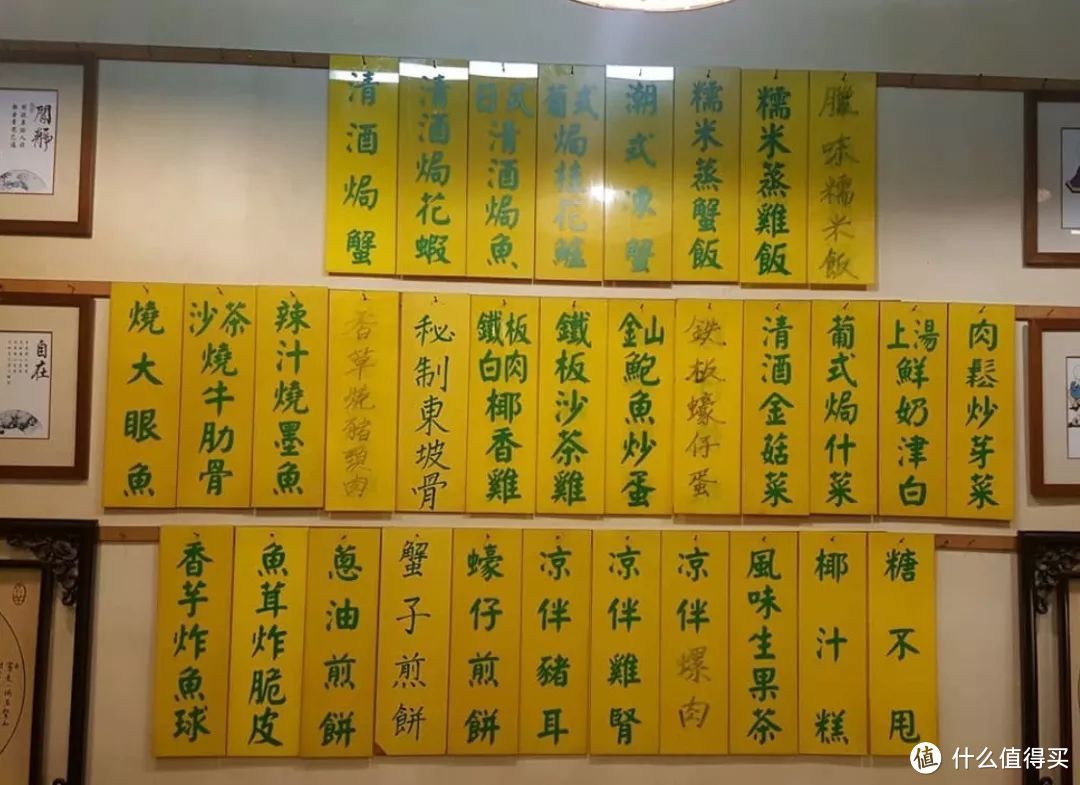 清酒焗蟹
清酒焗花蝦
日式清酒焗魚
葡式焗桂花鱸
潮式凍蟹
糯米蒸蟹飯
糯米蒸雞飯
臘味糯米飯
燒大眼魚
沙茶燒牛肋骨
辣汁燒墨魚
香草燒豬頸肉
秘制東坡骨
鐵板白肉椰香雞
鐵板沙茶雞
釜山鮑魚炒蛋
鉄板蠔仔蛋
清酒金菇菜
葡式焗什菜
上湯鮮奶津白
肉鬆炒芽菜
香芋炸魚球
魚茸炸脆皮
蔥油煎餅
蟹子煎餅
蠔仔煎餅
凉伴豬耳
凉伴雞腎
凉伴螺肉
風味生果茶
椰汁糕
糖不甩
自在
值 什么值得买